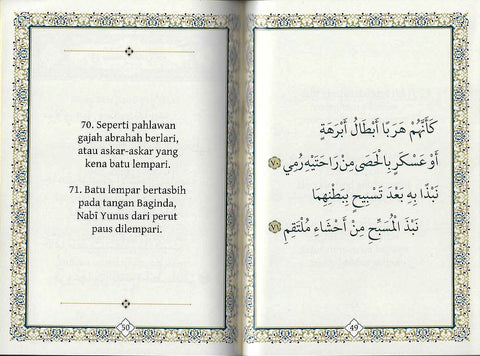 70. Seperti pahlawan
gajah abrahah berlari,
atau askar-askar yang
kena batu lempari.
71. Batu lempar bertasbih
pada tangan Baginda,
Nabī Yunus dari perut
paus dilempari.
50
كَأَنَّهُمْ هَرَبًا أَبْطَالُ أَبْرَهَةٍ
أَوْ عَسْكَرٍ بِالْحَصَى مِنْ رَاحَتَيْهِ رُمِي ٧٠
نَبْذًا بِهِ بَعْدَ تَسْبِيحٍ بِبَطْنِهِمَا
نَبْذَ الْمُسَبِّحِ مِنْ أَحْشَاءِ مُلْتَقِمِ ٧١
49